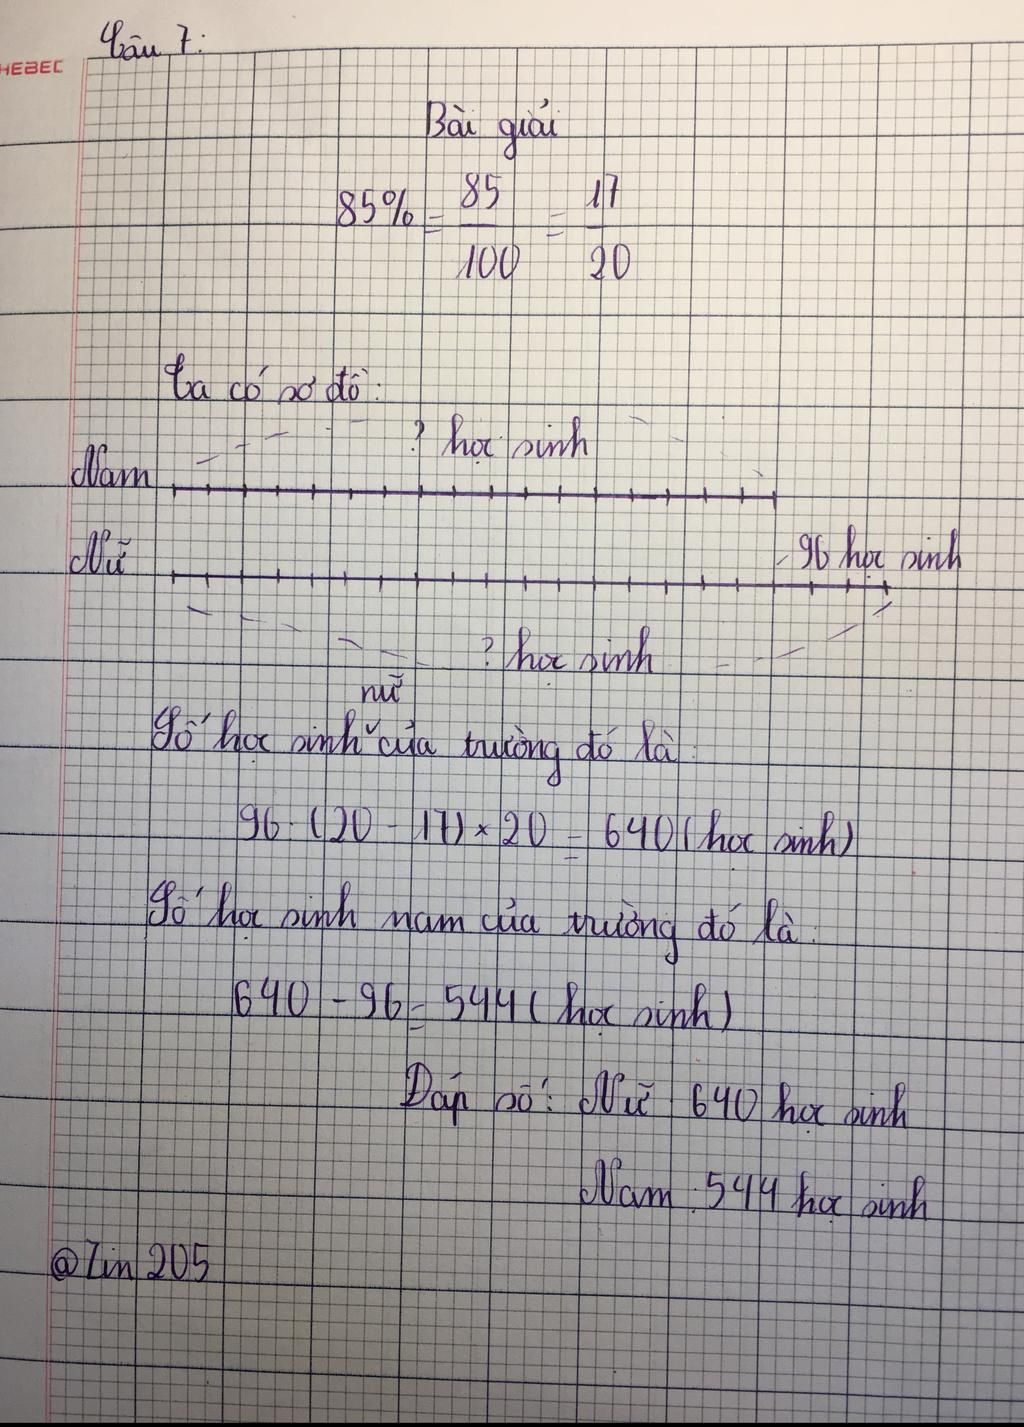 Câu 7:
HEBEC
Bài giải
85% = 85/100 = 17/20
Ta có sơ đồ:
? học sinh
Nam
Nữ
96 học sinh
? học sinh
nữ
Số học sinh của trường đó là:
96 : (20 - 17) × 20 = 640 (học sinh)
Số học sinh nam của trường đó là:
640 - 96 = 544 (học sinh)
Đáp số: Nữ: 640 học sinh
Nam: 544 học sinh
@Zin 205